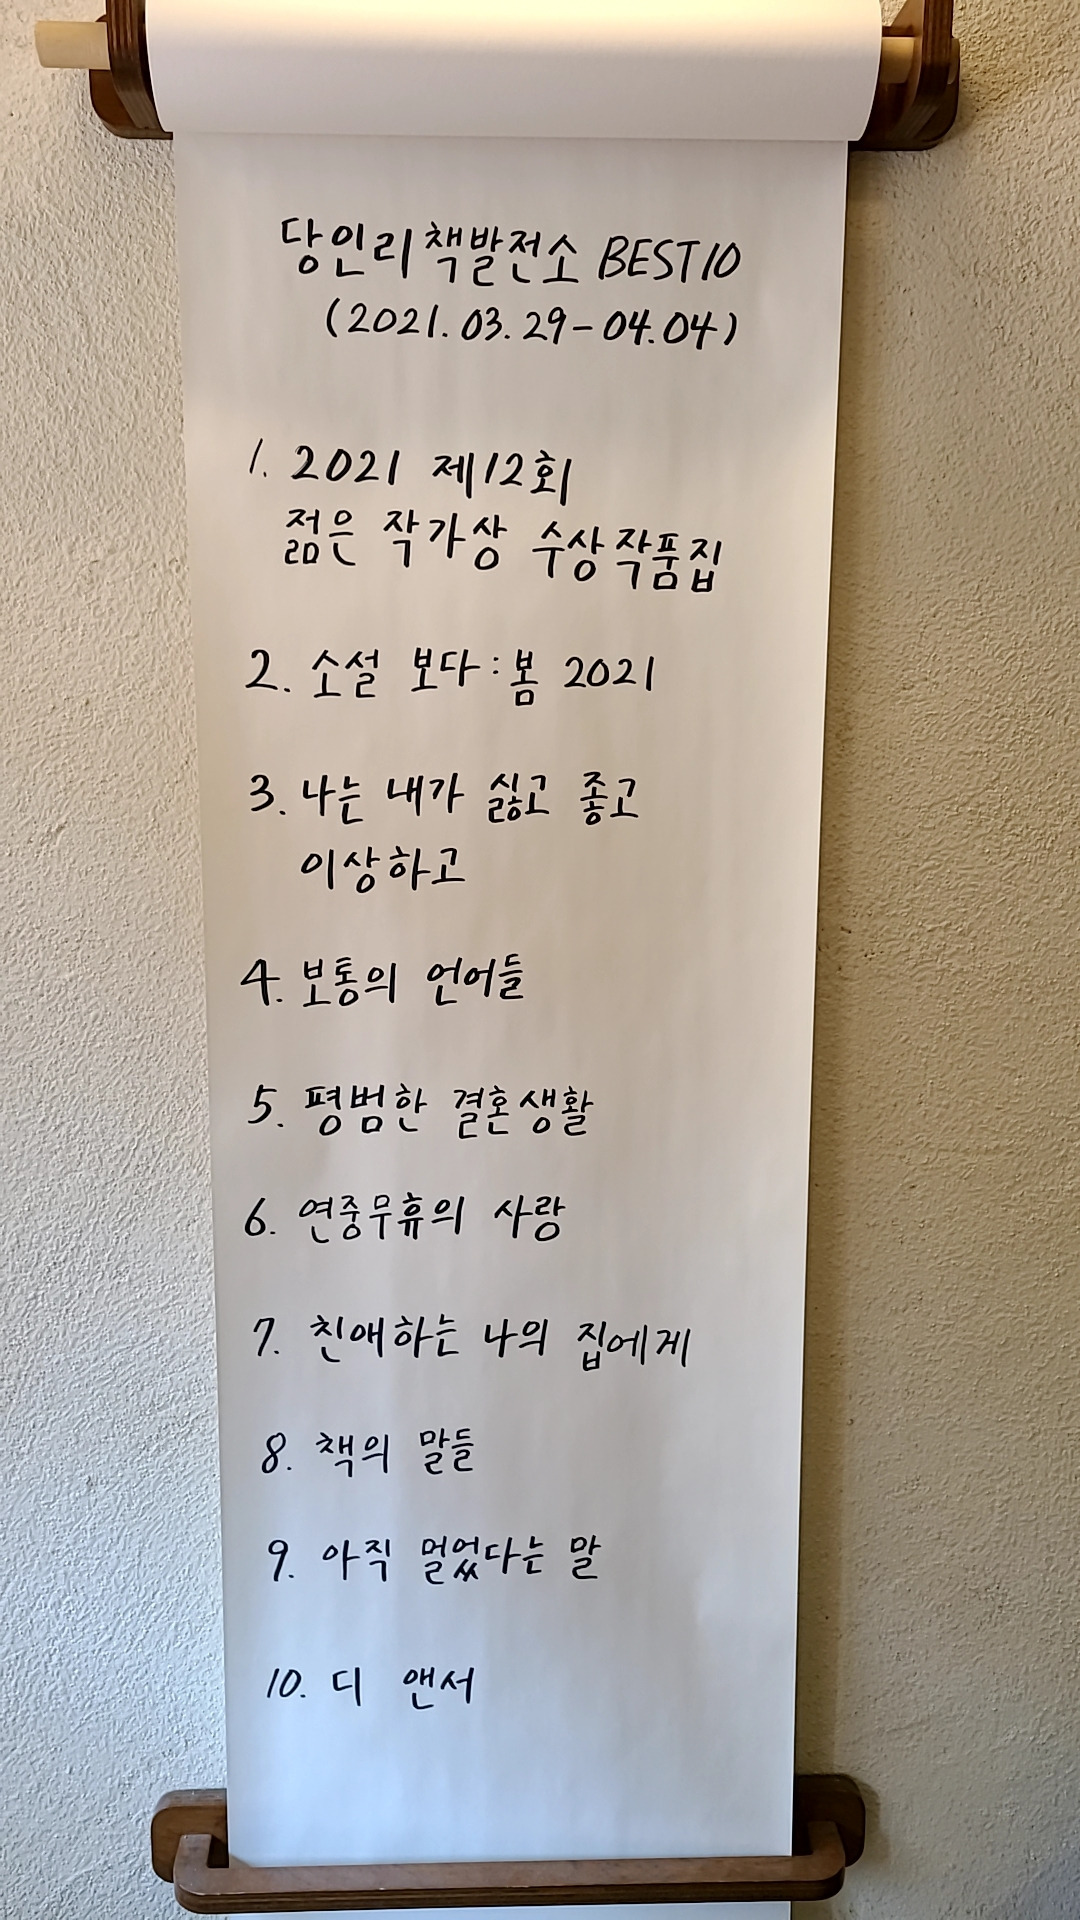 당인리책발전소 BEST10
(2021.03.29-04.04)
1. 2021 제12회
젊은 작가상 수상작품집
2. 소설 보다:봄 2021
3. 나는 내가 싫고 좋고
이상하고
4. 보통의 언어들
5. 평범한 결혼생활
6. 연중무휴의 사랑
7. 친애하는 나의 집에게
8. 책의 말들
9. 아직 멀었다는 말
10. 디 앤서